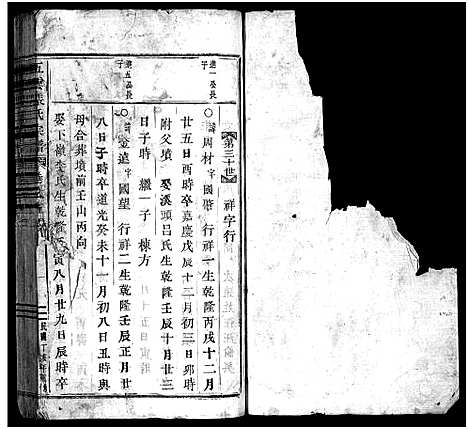 第三十世 祥字行
進一公長子
○諱周材字國階行祥一生乾隆丙戌十二月
廿五日酉時卒嘉慶戊辰十二月初三日卯時
附父墳 娶溪頭呂氏生乾隆壬辰十月廿三
日子時 繼一子 棟方
進五公長子
○諱金遠字國望行祥二生乾隆壬辰正月廿
八日子時卒道光癸未十一月初八日丑時與
母合葬墳前壬山丙向
娶下嶺李氏生乾隆 寅八月廿九日辰時卒